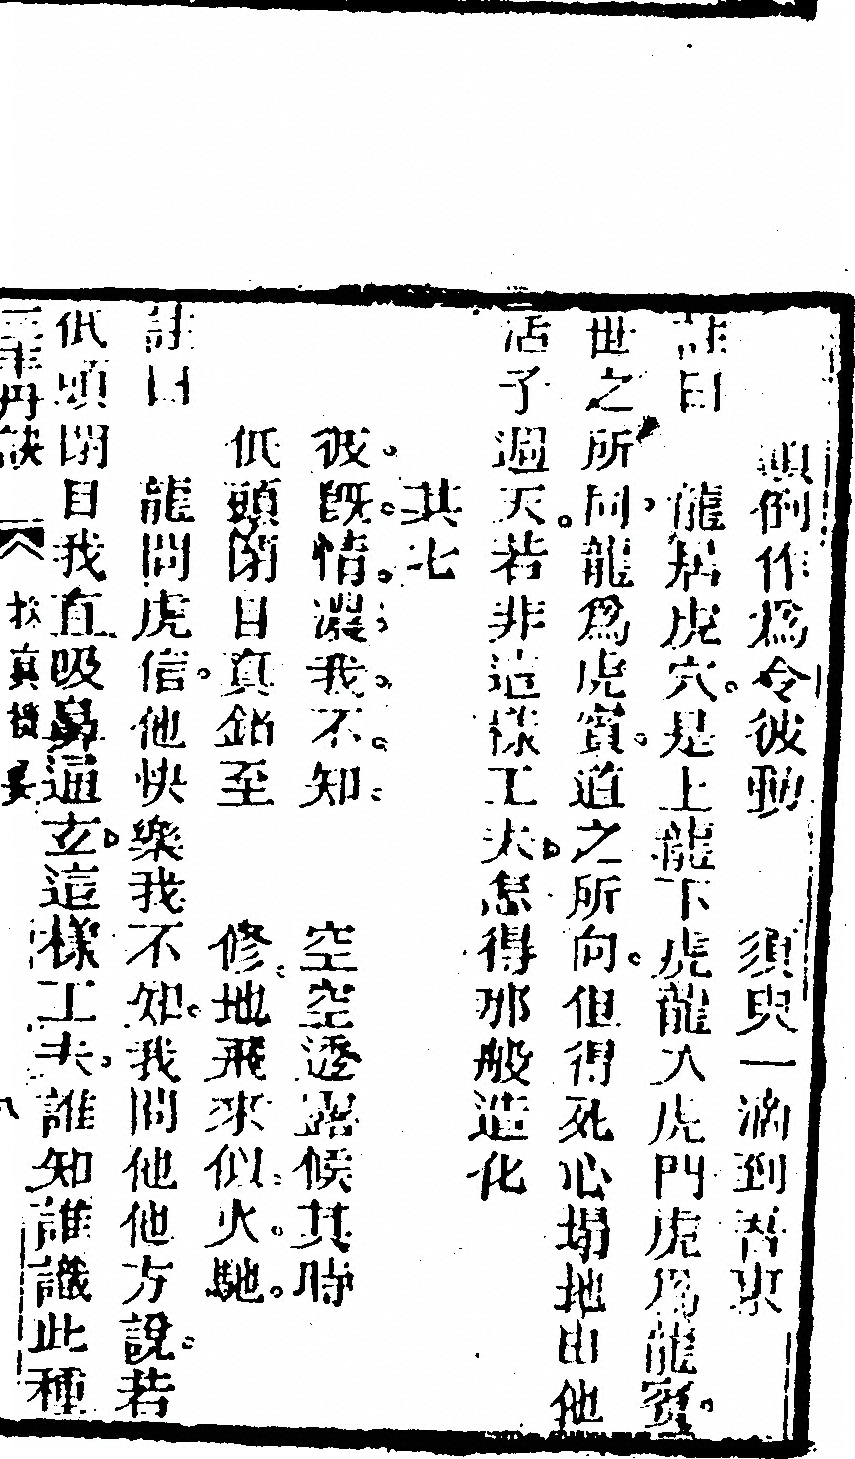 顛倒作爲令彼動　須臾一滴到吾東
註曰　龍居虎穴。是上龍下虎龍入虎門虎爲龍賓。
世之所同。龍爲虎賓。道之所向。但得死心塌地由他
活子過天。若非這樣工夫。怎得那般造化
其七
彼旣情濃我不知　空空透露候其時
低頭閉目眞鉛至　修地飛來似火馳。
註曰　龍問虎信。他快樂我不知。我問他他方說。若
低頭閉目我直吸鼻通玄。這樣工夫。誰知誰識此種
三丰丹訣　八　眞機　八